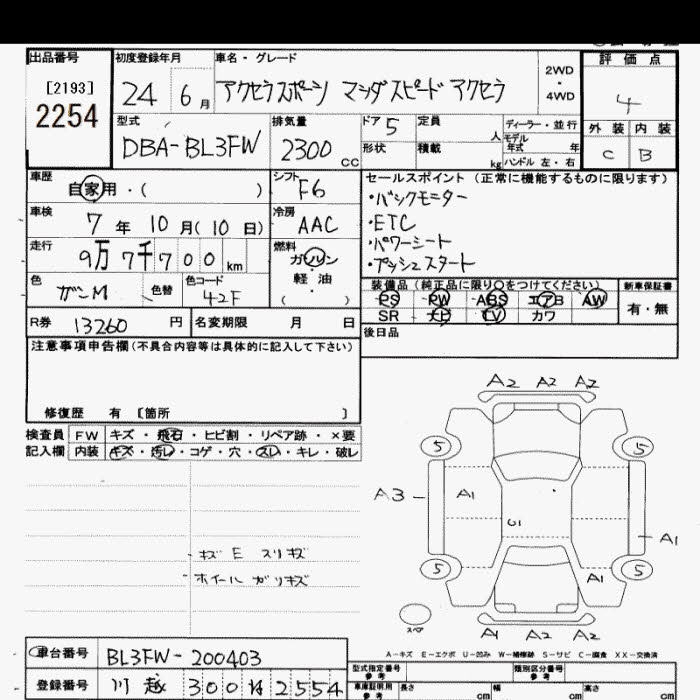 出品番号 初度登録年月 車名・グレード 評価点
[2193] 2254
24 6月 アクセラスポーツ マツダスピード アクセラ 2WD・4WD 4
型式 排気量 ドア 5 定員 人 ディーラー・並行 外装 内装
DBA-BL3FW 2300cc 形状 積載 kg モデル年式 年 ハンドル 左・右 C B
車歴 シフト セールスポイント (正常に機能するものに限ります)
自家用・( ) F6 ・バックモニター
車検 冷房 ・ETC
7年 10月(10日) AAC ・パワーシート
走行 燃料 ・プッシュスタート
9万7千700km ガソリン
色 色替 色コード 軽・油
ガンM 42F ( )
装備品 (純正品に限り○をつけてください) 新車保証書
PS PW ABS エアB AW 有・無
SR ナビ TV カワ
R券 13260円 名変期限 月 日 後日品
注意事項申告欄 (不具合内容等は具体的に記入して下さい)
修復歴 有 [箇所 ]
検査員 FW キズ・飛石・ヒビ割・リペア跡・×要
記入欄 内装 キズ・汚レ・コゲ・穴・スレ・キレ・破レ
A2 A2 A2
5 5
A3 A1
U1 A1
キズ E スリキズ
ホイール ガリキズ
5 A1 5
スペア
A1 A2 A2
A-キズ E-エクボ U-凹み W-補修跡 S-サビ C-腐食 XX-交換済
車台番号 BL3FW-200403
型式指定番号 参考 類別区分番号 参考
登録番号 川越 300 2554
車庫証明用 参考 長さ cm 幅 cm 高さ cm